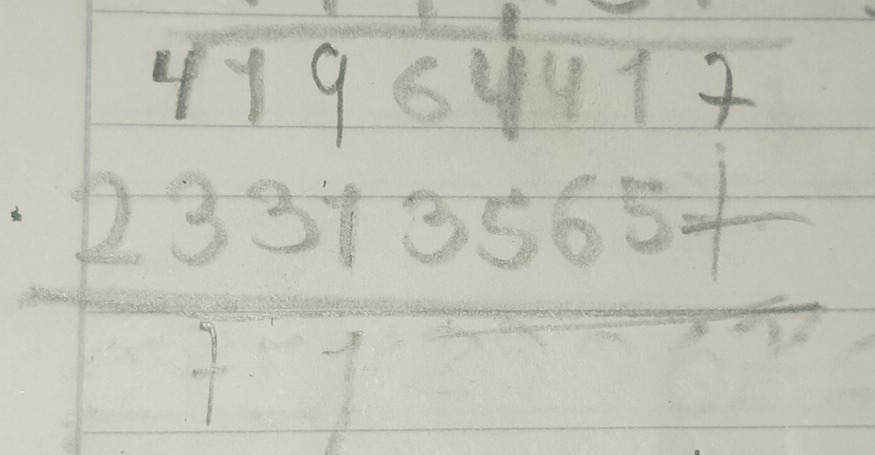 41964417
23313565+
7 1